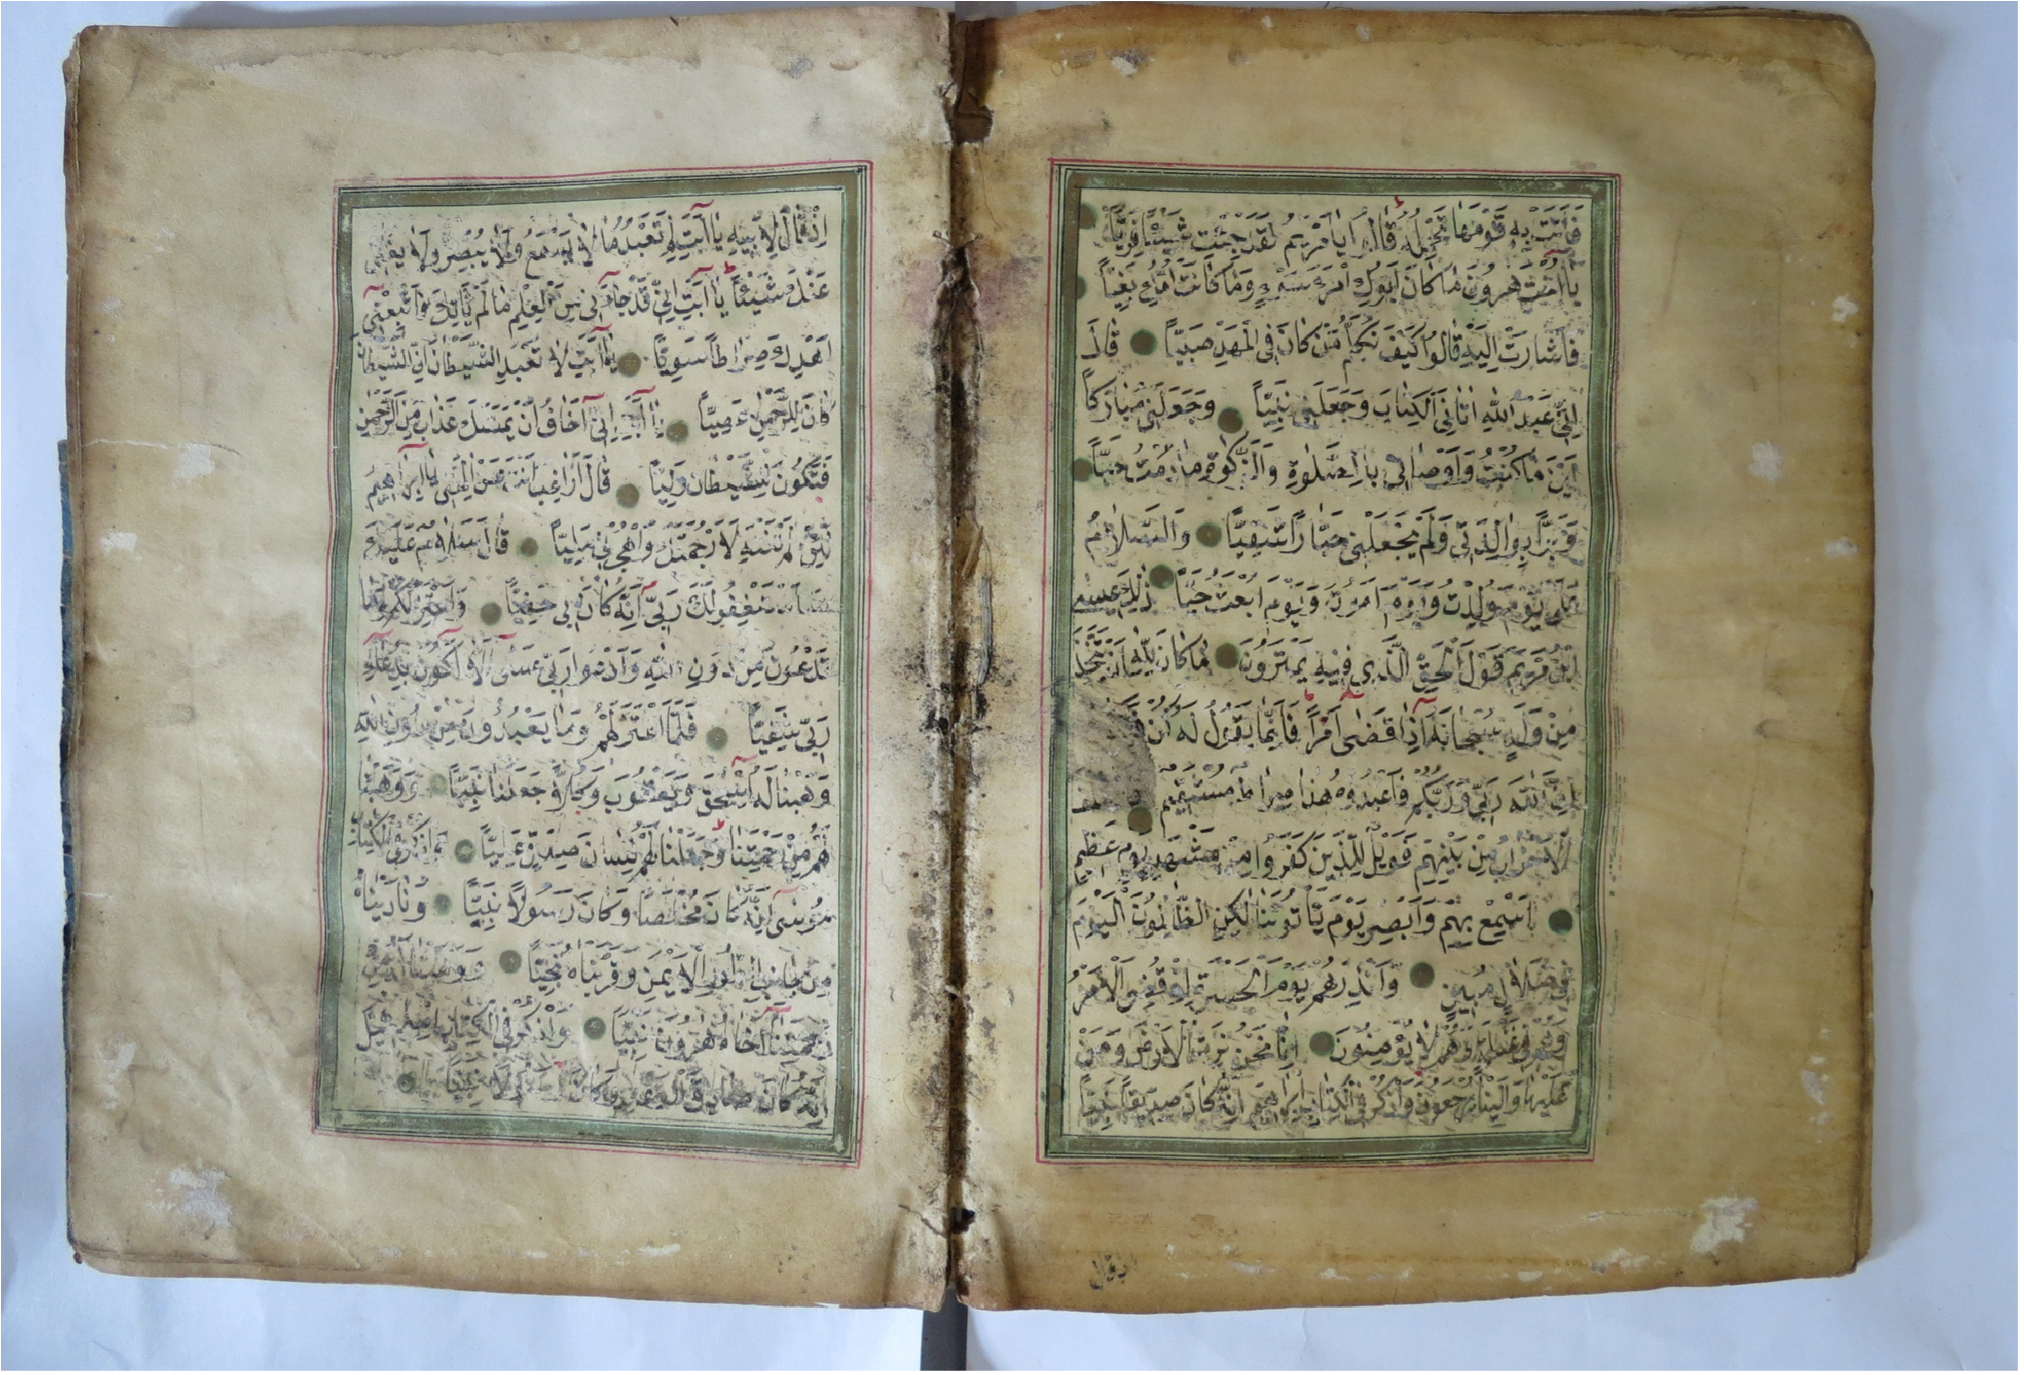 فَأَتَتْ بِهِ قَوْمَهَا تَحْمِلُهُ قَالُوا يَا مَرْيَمُ لَقَدْ جِئْتِ شَيْئًا فَرِيًّا
يَا اُخْتَ هٰرُونَ مَا كَانَ اَبُوكِ امْرَءَ سَوْءٍ وَمَا كَانَتْ اُمُّكِ بَغِيًّا
فَاَشَارَتْ اِلَيْهِ قَالُوا كَيْفَ نُكَلِّمُ مَنْ كَانَ فِي الْمَهْدِ صَبِيًّا قَالَ
اِنِّي عَبْدُ اللّٰهِ اٰتَانِيَ الْكِتَابَ وَجَعَلَنِي نَبِيًّا وَجَعَلَنِي مُبَارَكًا
اَيْنَ مَا كُنْتُ وَاَوْصَانِي بِالصَّلٰوةِ وَالزَّكٰوةِ مَا دُمْتُ حَيًّا
وَبَرًّا بِوَالِدَتِي وَلَمْ يَجْعَلْنِي جَبَّارًا شَقِيًّا وَالسَّلَامُ
عَلَيَّ يَوْمَ وُلِدْتُ وَيَوْمَ اَمُوتُ وَيَوْمَ اُبْعَثُ حَيًّا ذٰلِكَ عِيسَى
ابْنُ مَرْيَمَ قَوْلَ الْحَقِّ الَّذِي فِيهِ يَمْتَرُونَ مَا كَانَ لِلّٰهِ اَنْ يَتَّخِذَ
مِنْ وَلَدٍ سُبْحَانَهُ اِذَا قَضٰى اَمْرًا فَاِنَّمَا يَقُولُ لَهُ كُنْ
اِنَّ اللّٰهَ رَبِّي وَرَبُّكُمْ فَاعْبُدُوهُ هٰذَا صِرَاطٌ مُسْتَقِيمٌ
الْاَحْزَابُ مِنْ بَيْنِهِمْ فَوَيْلٌ لِلَّذِينَ كَفَرُوا مِنْ مَشْهَدِ يَوْمٍ عَظِيمٍ
اَسْمِعْ بِهِمْ وَاَبْصِرْ يَوْمَ يَأْتُونَنَا لٰكِنِ الظَّالِمُونَ الْيَوْمَ
فِي ضَلَالٍ مُبِينٍ وَاَنْذِرْهُمْ يَوْمَ الْحَسْرَةِ اِذْ قُضِيَ الْاَمْرُ
وَهُمْ فِي غَفْلَةٍ وَهُمْ لَا يُؤْمِنُونَ اِنَّا نَحْنُ نَرِثُ الْاَرْضَ وَمَنْ
عَلَيْهَا وَاِلَيْنَا يُرْجَعُونَ وَاذْكُرْ فِي الْكِتَابِ اِبْرٰهِيمَ اِنَّهُ كَانَ صِدِّيقًا نَبِيًّا
اذ قال
اِذْ قَالَ لِاَبِيهِ يَا اَبَتِ لِمَ تَعْبُدُ مَا لَا يَسْمَعُ وَلَا يُبْصِرُ وَلَا يُغْنِي
عَنْكَ شَيْئًا يَا اَبَتِ اِنِّي قَدْ جَاءَنِي مِنَ الْعِلْمِ مَا لَمْ يَأْتِكَ فَاتَّبِعْنِي
اَهْدِكَ صِرَاطًا سَوِيًّا يَا اَبَتِ لَا تَعْبُدِ الشَّيْطَانَ اِنَّ الشَّيْطَانَ
كَانَ لِلرَّحْمٰنِ عَصِيًّا يَا اَبَتِ اِنِّي اَخَافُ اَنْ يَمَسَّكَ عَذَابٌ مِنَ الرَّحْمٰنِ
فَتَكُونَ لِلشَّيْطَانِ وَلِيًّا قَالَ اَرَاغِبٌ اَنْتَ عَنْ اٰلِهَتِي يَا اِبْرَاهِيمُ
لَئِنْ لَمْ تَنْتَهِ لَاَرْجُمَنَّكَ وَاهْجُرْنِي مَلِيًّا قَالَ سَلَامٌ عَلَيْكَ
سَاَسْتَغْفِرُ لَكَ رَبِّي اِنَّهُ كَانَ بِي حَفِيًّا وَاَعْتَزِلُكُمْ وَمَا
تَدْعُونَ مِنْ دُونِ اللّٰهِ وَاَدْعُوا رَبِّي عَسٰى اَلَّا اَكُونَ بِدُعَاءِ
رَبِّي شَقِيًّا فَلَمَّا اعْتَزَلَهُمْ وَمَا يَعْبُدُونَ مِنْ دُونِ اللّٰهِ
وَهَبْنَا لَهُ اِسْحٰقَ وَيَعْقُوبَ وَكُلًّا جَعَلْنَا نَبِيًّا وَوَهَبْنَا
لَهُمْ مِنْ رَحْمَتِنَا وَجَعَلْنَا لَهُمْ لِسَانَ صِدْقٍ عَلِيًّا وَاذْكُرْ فِي الْكِتَابِ
مُوسٰى اِنَّهُ كَانَ مُخْلَصًا وَكَانَ رَسُولًا نَبِيًّا وَنَادَيْنَاهُ
مِنْ جَانِبِ الطُّورِ الْاَيْمَنِ وَقَرَّبْنَاهُ نَجِيًّا وَوَهَبْنَا لَهُ مِنْ
رَحْمَتِنَا اَخَاهُ هٰرُونَ نَبِيًّا وَاذْكُرْ فِي الْكِتَابِ اِسْمٰعِيلَ
اِنَّهُ كَانَ صَادِقَ الْوَعْدِ وَكَانَ رَسُولًا نَبِيًّا